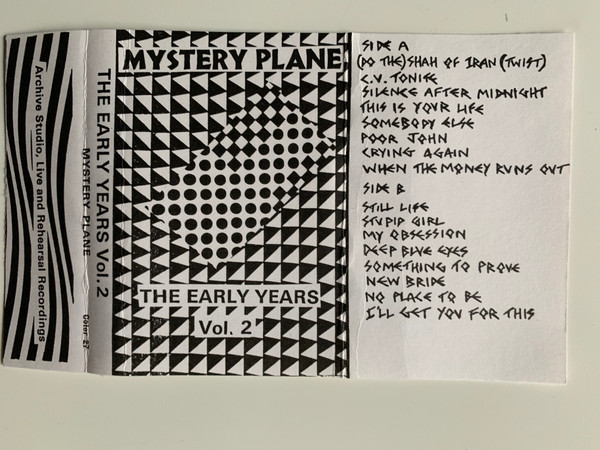 Archive Studio, Live and Rehearsal Recordings
THE EARLY YEARS Vol. 2
MYSTERY PLANE
Color 27
MYSTERY PLANE
THE EARLY YEARS
Vol. 2
SIDE A
(DO THE) SHAH OF IRAN (TWIST)
C.V. TONITE
SILENCE AFTER MIDNIGHT
THIS IS YOUR LIFE
SOMEBODY ELSE
POOR JOHN
CRYING AGAIN
WHEN THE MONEY RUNS OUT
SIDE B
STILL LIFE
STUPID GIRL
MY OBSESSION
DEEP BLUE EYES
SOMETHING TO PROVE
NEW BRIDE
NO PLACE TO BE
I'LL GET YOU FOR THIS